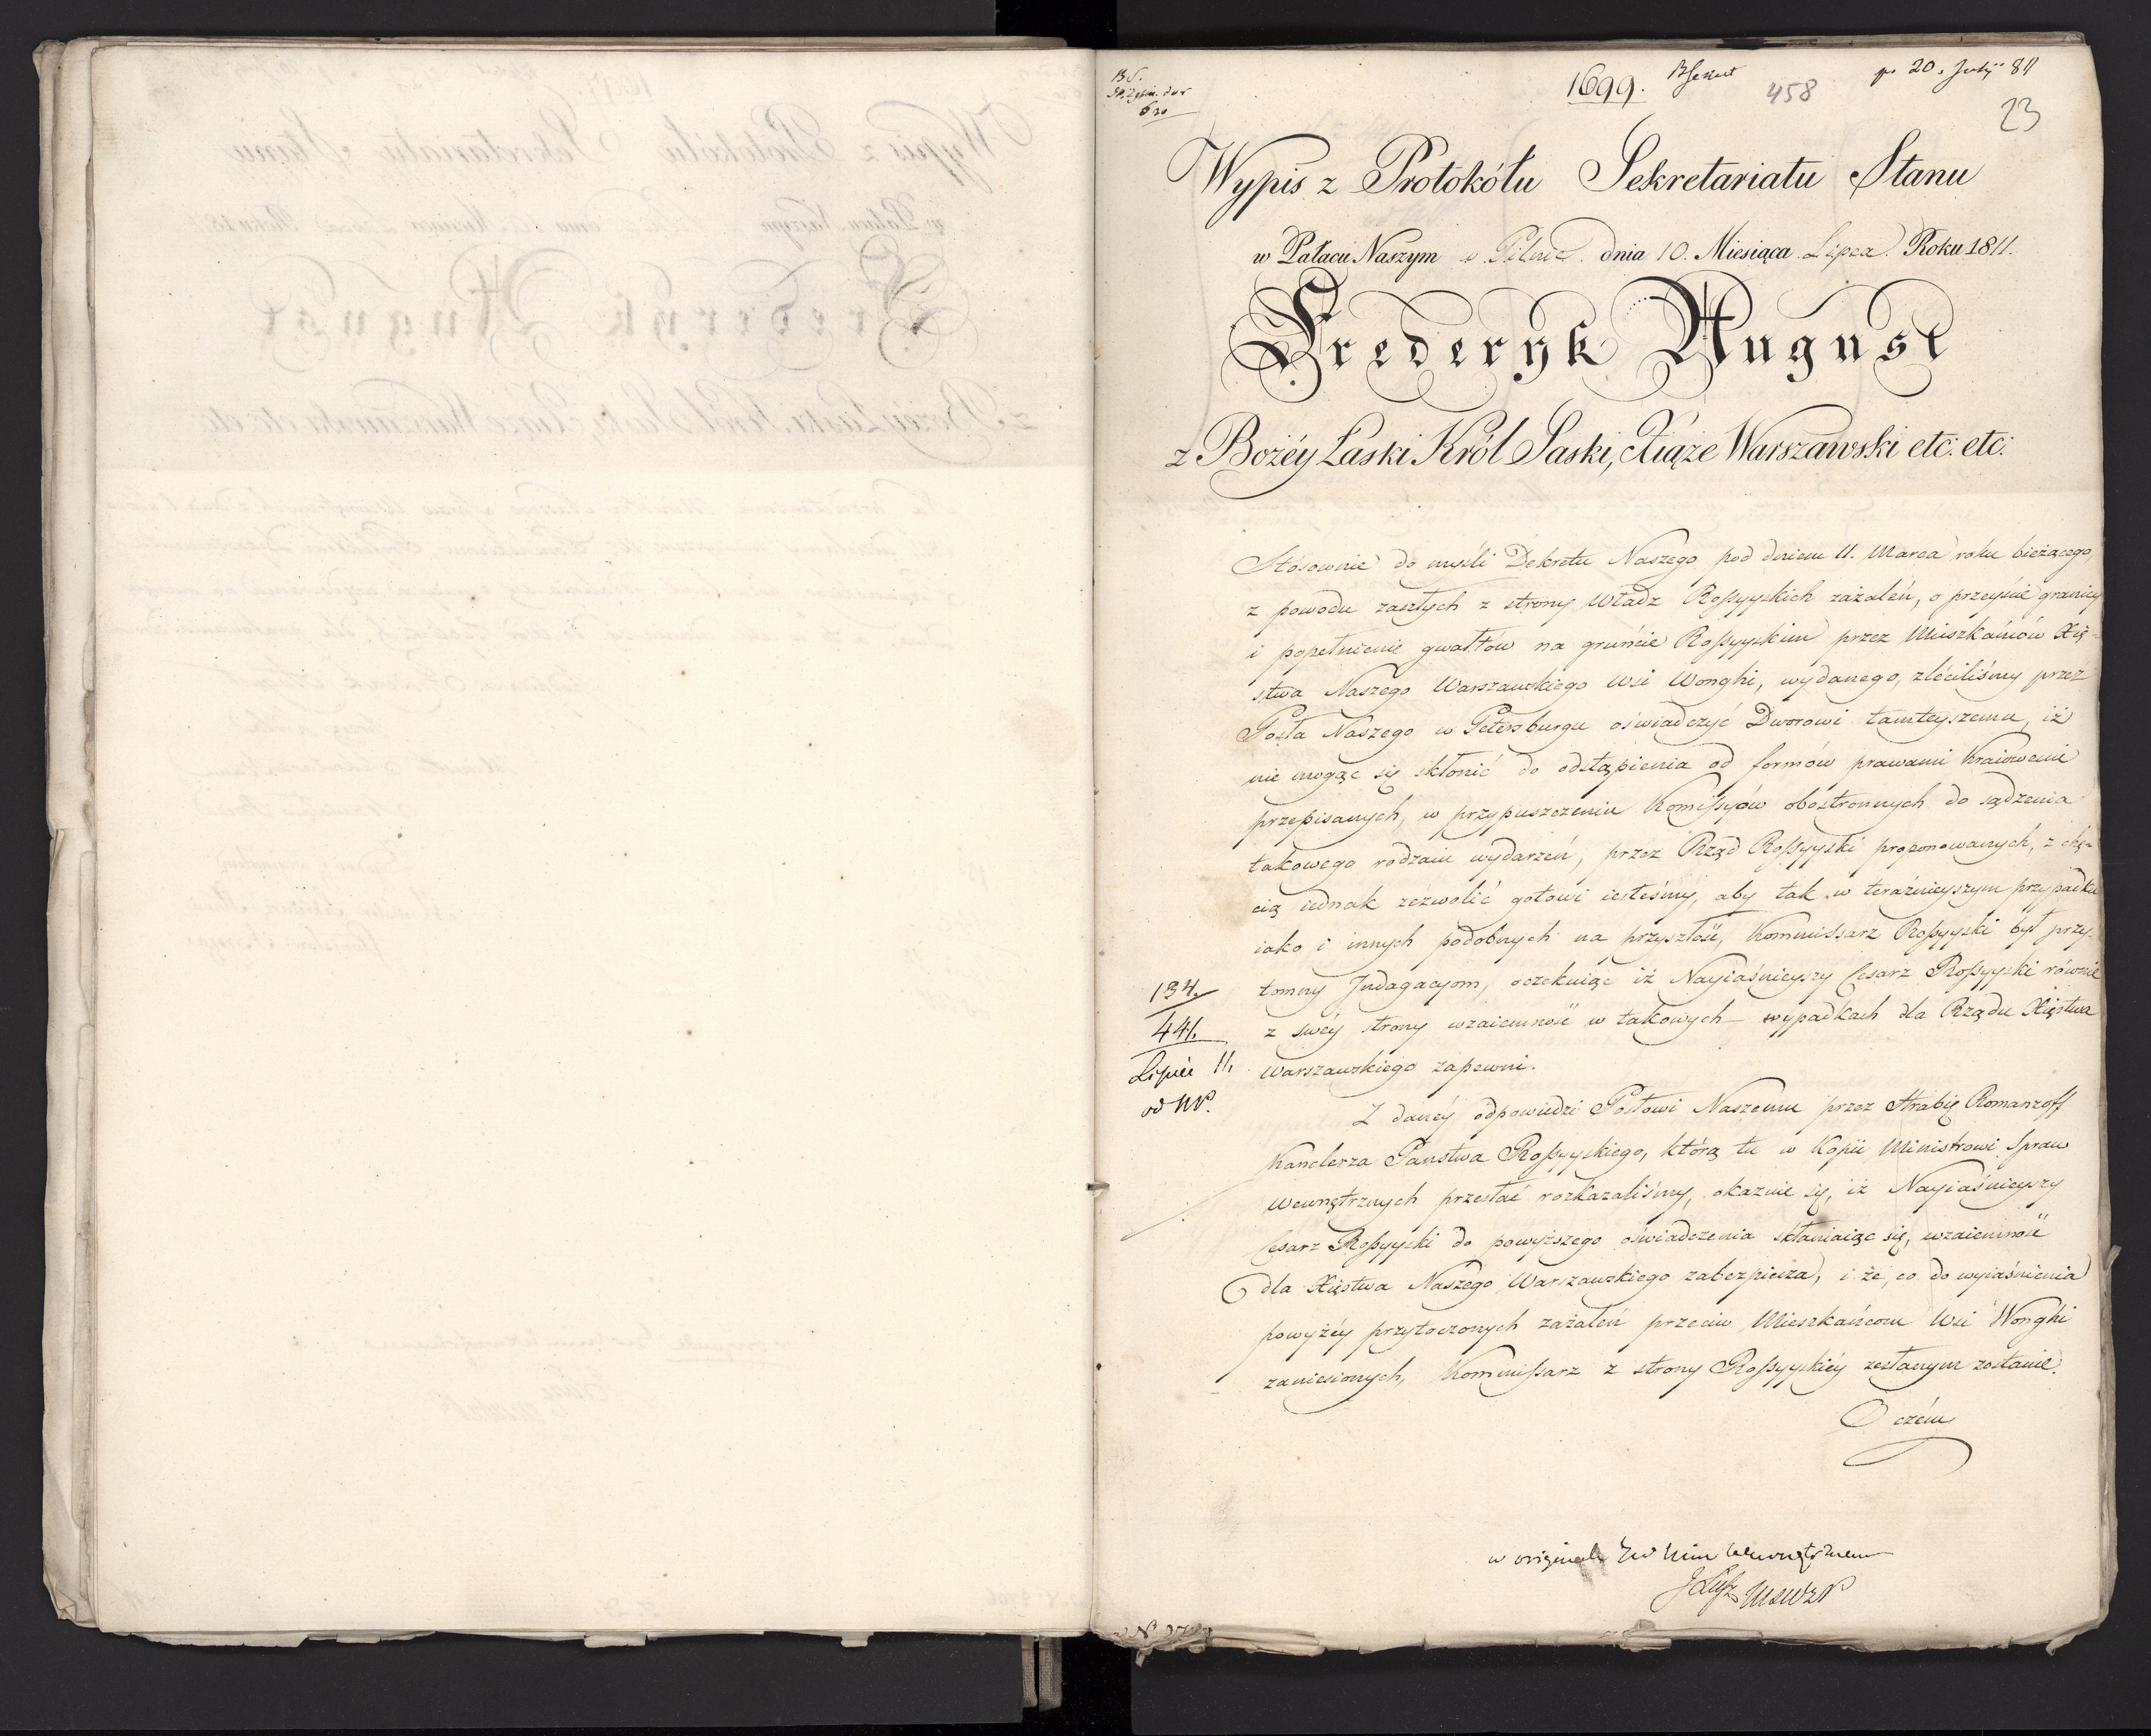 1699.
458
pr 20. July 811
23
Wypis z Protokółu Sekretariatu Stanu
w Pałacu Naszym w Pilnic dnia 10. Miesiąca Lipca Roku 1811.
Frederyk August
z Bożéy Łaski Król Saski, Xiąże Warszawski etc: etc:
Stósownie do myśli Dekretu Naszego pod dniem 11. Marca roku bieżącego,
z powodu zaszłych z strony Władz Roſsyyskich zażaleń, o przeyście granicy
i popełnienie gwałtów na gruńcie Roſsyyskim przez Mieszkańców Xię-
stwa Naszego Warszawskiego Wsi Wonghi, wydanego, zléciliśmy przez
Posła Naszego w Petersburgu oświadczyć Dworowi tamteyszemu, iż
nie mogąc się skłonić do odstąpienia od formów prawami Kraiowemi
przepisanych, w przypuszczeniu Komiſsyów obostronnych do sądzenia
takowego rodzaiu wydarzeń, przez Rząd Roſsyyski proponowanych, z chę-
cią iednak zézwolić gotowi iesteśmy, aby tak w teraźnieyszym przypadku
iako i innych podobnych na przyszłość, Kommissarz Roſsyyski był przy-
tomny Indagacyom, oczekuiąc iż Nayiaśnieyszy Cesarz Roſsyyski równie
z swéy strony wzaiemność w takowych wypadkach dla Rządu Xięstwa
Warszawskiego zapewni.
134.
441.
Lipiec 11.
Z danéy odpowiedzi Posłowi Naszemu przez Hrabię Romanzoff
Kanclerza Państwa Roſsyyskiego, którą tu w Kopii Ministrowi Spraw
Wewnętrznych przesłać rozkazaliśmy, okazuie się, iż Nayiaśnieyszy
Cesarz Roſsyyski do powyższego oświadczenia skłaniaiąc się, wzaiemność
dla Xięstwa Naszego Warszawskiego zabezpiecza, i że, co do wyiaśnienia
powyżéy przytoczonych zażaleń przeciw Mieszkańcom Wsi Wonghi
zaniesionych, Kommiſsarz z strony Roſsyyskiéy zesłanym zostanie.
O czém
w originale